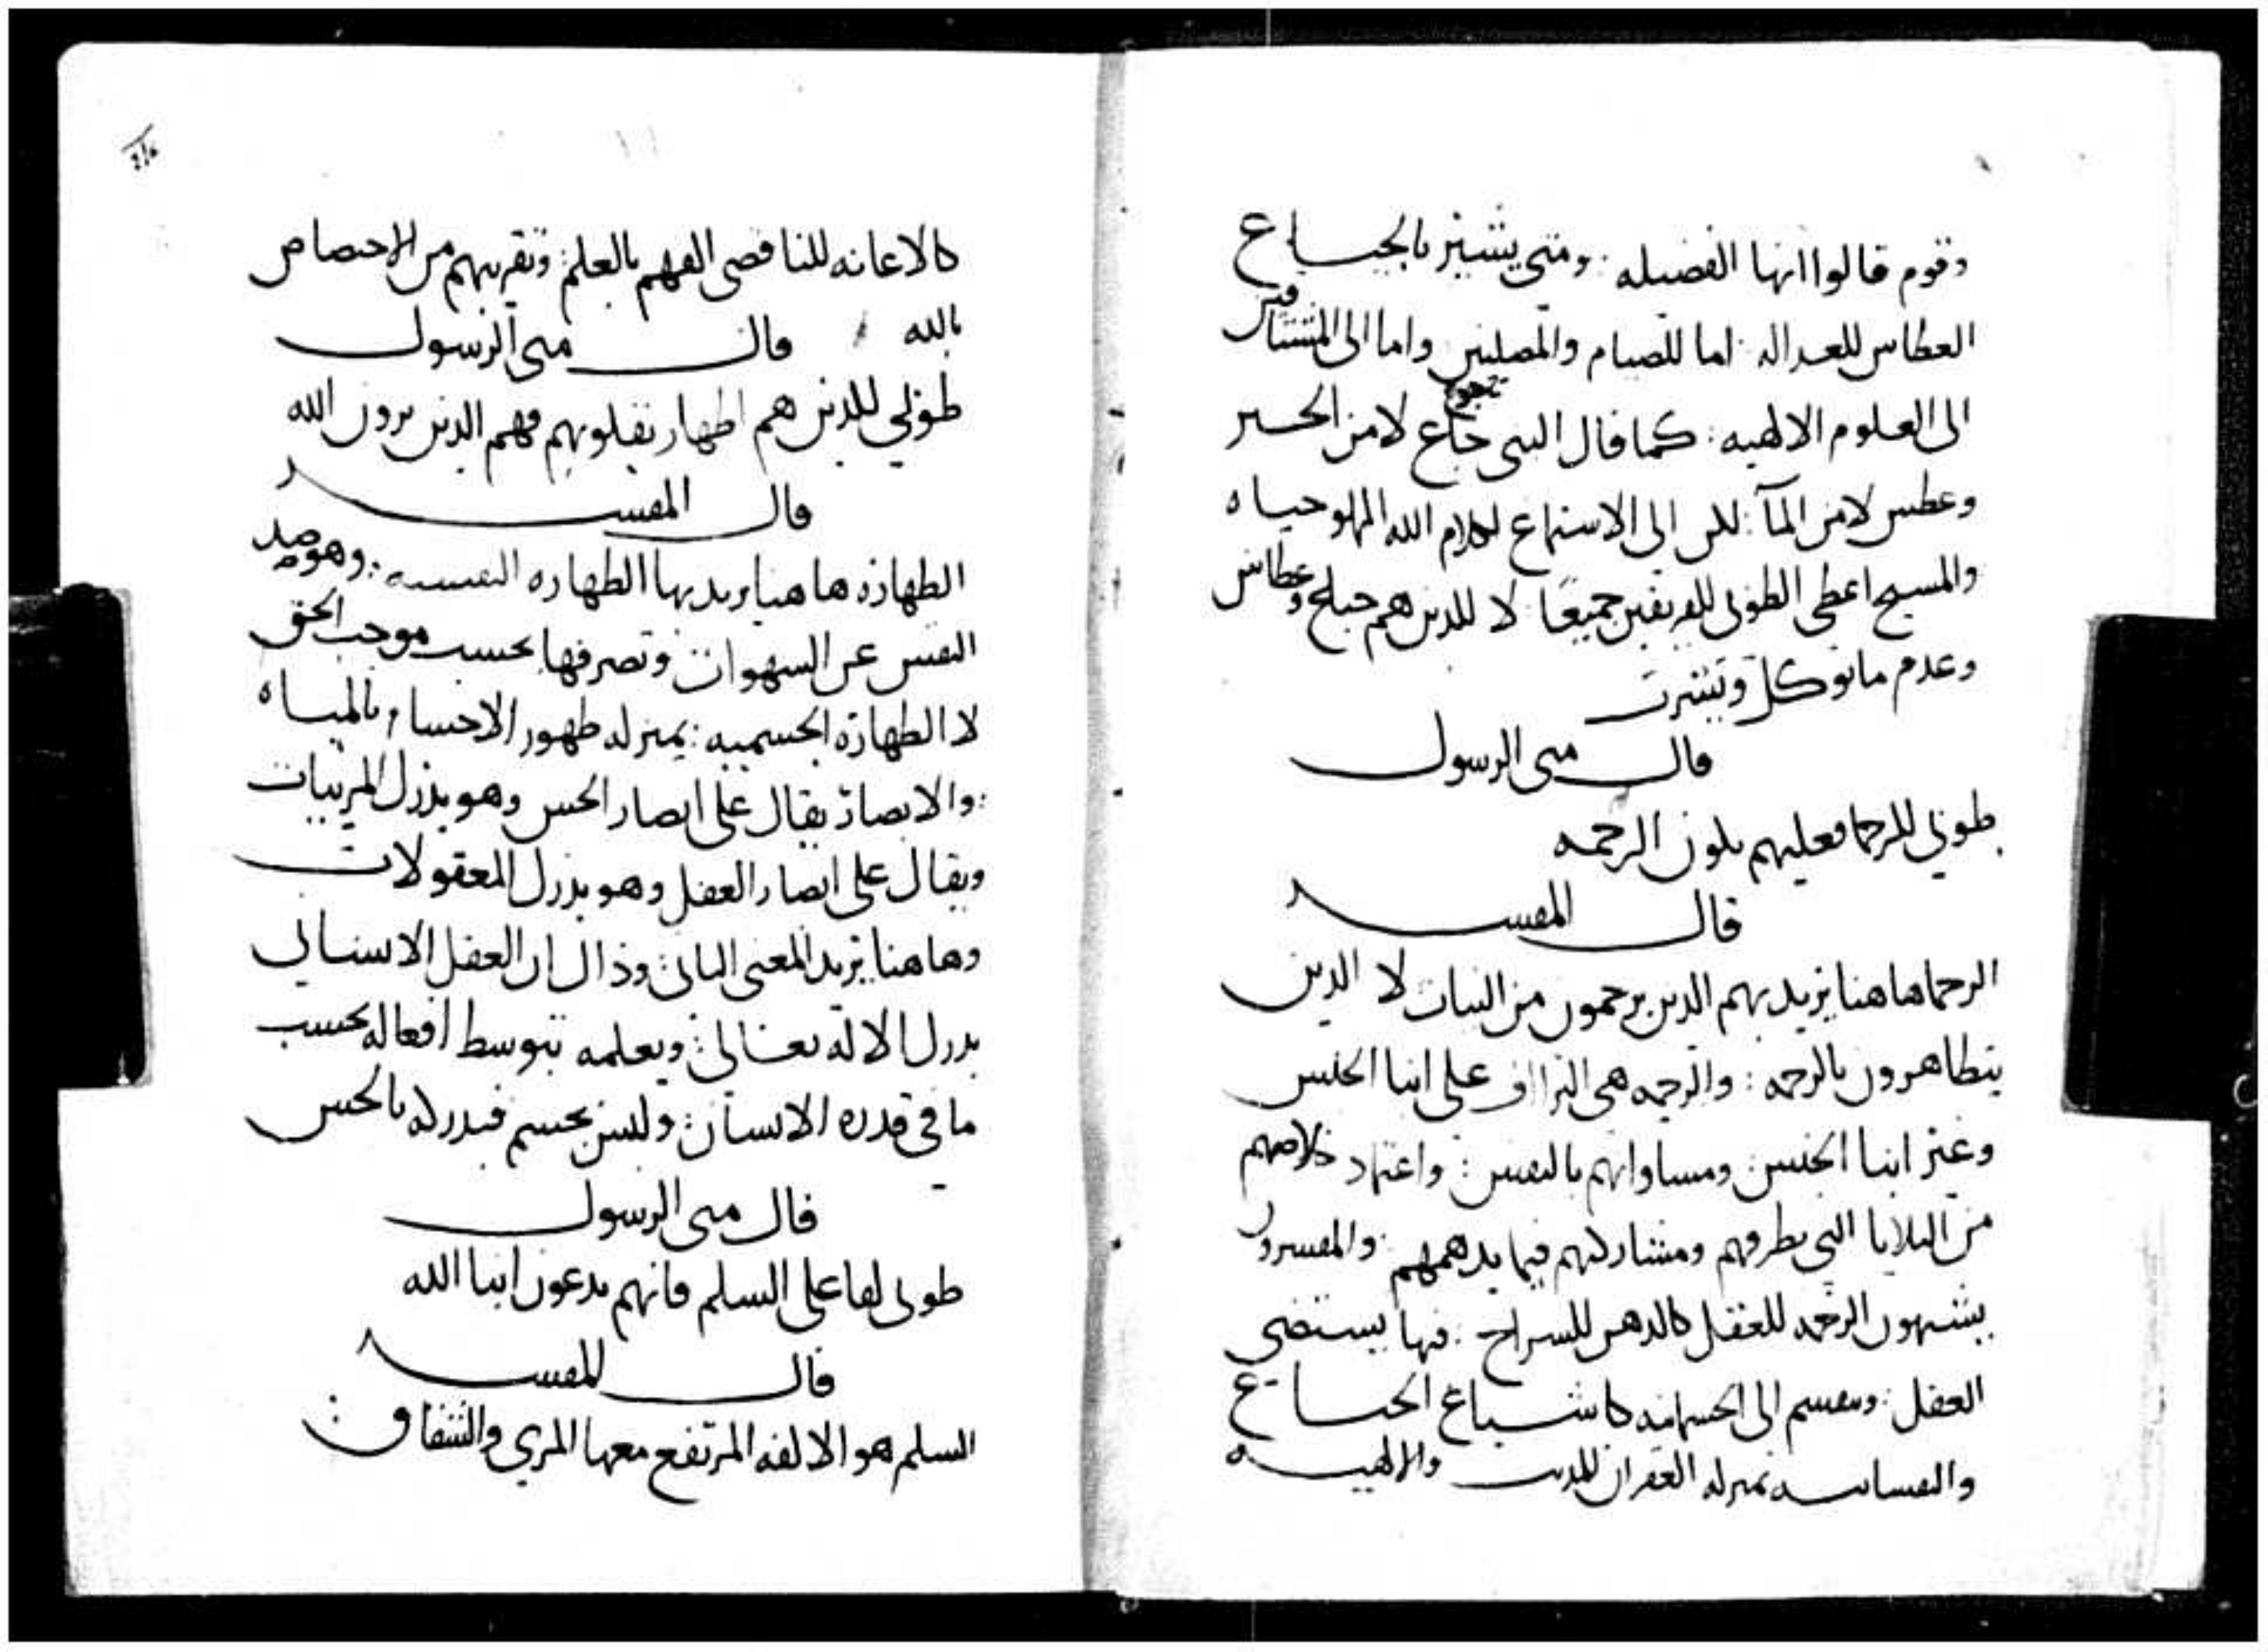 وقوم قالوا انها الفضيله : ومتى يشير بالجيـــاع
العطاش للعداله : اما للصيام والمصلين واما الى المشتاقين
الى العلوم الالهيه : كما قال النبي تجوع جاع لا من الخبز
وعطش لا من المآ : لكن الى الاستماع لكلام الله المملو حياه
والمسيح اعطى الطوبى للفريقين جميعًا لا للذين هم جياع وعطاش
وعدم ما توكل وتشرب
قال متى الرسول
طوبى للرحما فعليهم تكون الرحمه
قال المفسر
الرحما هاهنا يريد بهم الذين يرحمون من النيات لا الذين
يتظاهرون بالرحمه : والرحمه هي التراأف على ابنا الجنس
وغير ابنا الجنس ومساواتهم بالنفس : واعتماد خلاصهم
من البلايا التي تطرقهم ومشاركتهم فيما يدهمهم : والمفسرون
يشبهون الرحمه للعقل كالدهن للسراج : فبها يستضى
العقل : وتنقسم الى الجسمانيه كاشباع الجياع
والنفسانيه بمنزله الغفران للمذنب والالهيــه
كالاعانه للناقصى الفهم بالعلم : وتقريبهم من الاختصاص
بالله قال متى الرسول
طوبى للذين هم اطهار بقلوبهم فهم الذين يرون الله
قال المفسر
الطهاره هاهنا يريد بها الطهاره النفسيه : وهو صد
النفس عن الشهوات وتصرفها بحسب موجب الحق
لا الطهارة الجسميه : بمنزله طهور الاجسام بالمياه
: والابصار يقال على ابصار الحس وهو يدرك المرئيات
ويقال على ابصار العقل وهو يدرك المعقولات
وهاهنا يريد المعنى الثاني : وذاك ان العقل الانساني
يدرك الاله تعالى : ويعلمه بتوسط افعاله بحسب
ما في قدره الانسان : وليس بجسم فيدركه بالحس
قال متى الرسول
طوبى لفاعلى السلم فانهم يدعون ابنا الله
قال المفسر
السلم هو الالفه المرتفع معها المري والشقاق :